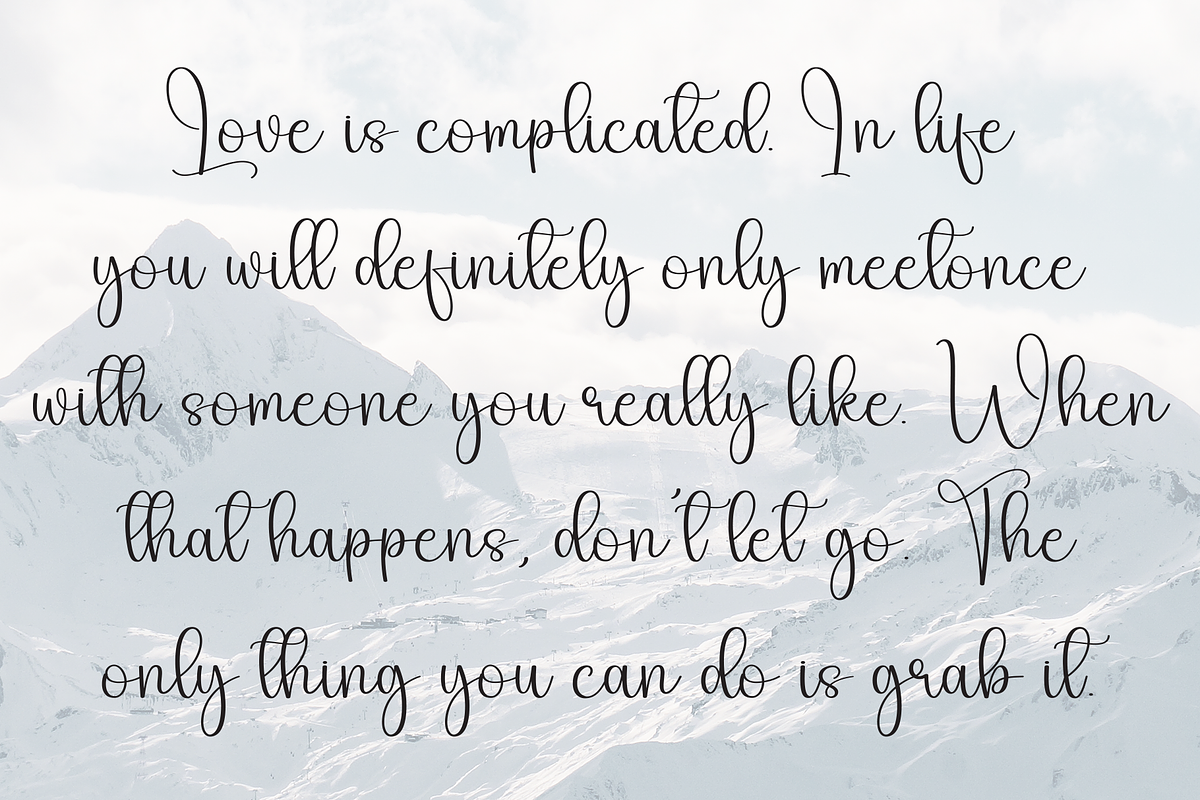 Love is complicated. In life
you will definitely only meetonce
with someone you really like. When
that happens, don't let go. The
only thing you can do is grab it.